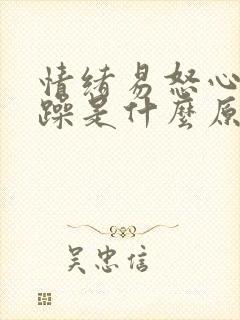 情绪易怒心
躁是什麼原
吴忠信